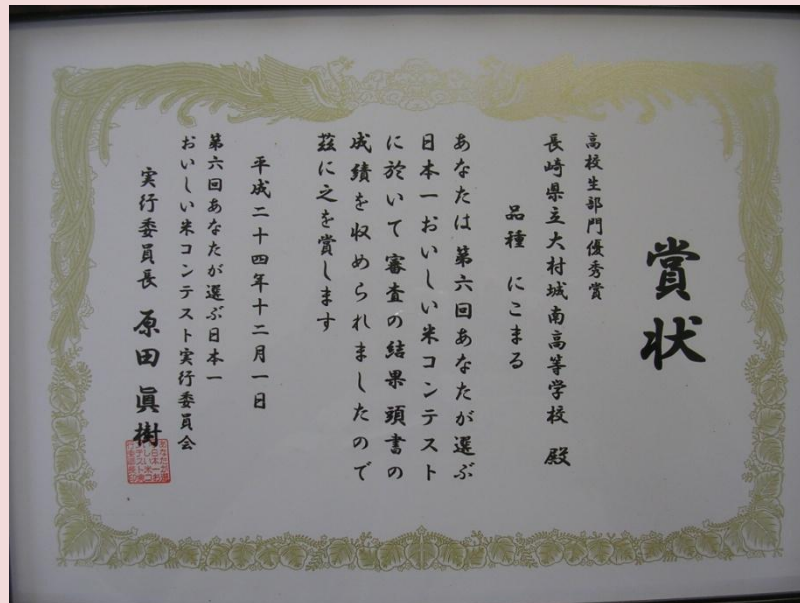 賞状
高校生部門優秀賞
長崎県立大村城南高等学校 殿
品種 にこまる
あなたは 第六回あなたが選ぶ
日本一おいしい米コンテスト
に於いて 審査の結果 頭書の
成績を収められましたので
茲に之を賞します
平成二十四年十二月一日
第六回あなたが選ぶ日本一
おいしい米コンテスト実行委員会
実行委員長 原田 眞樹